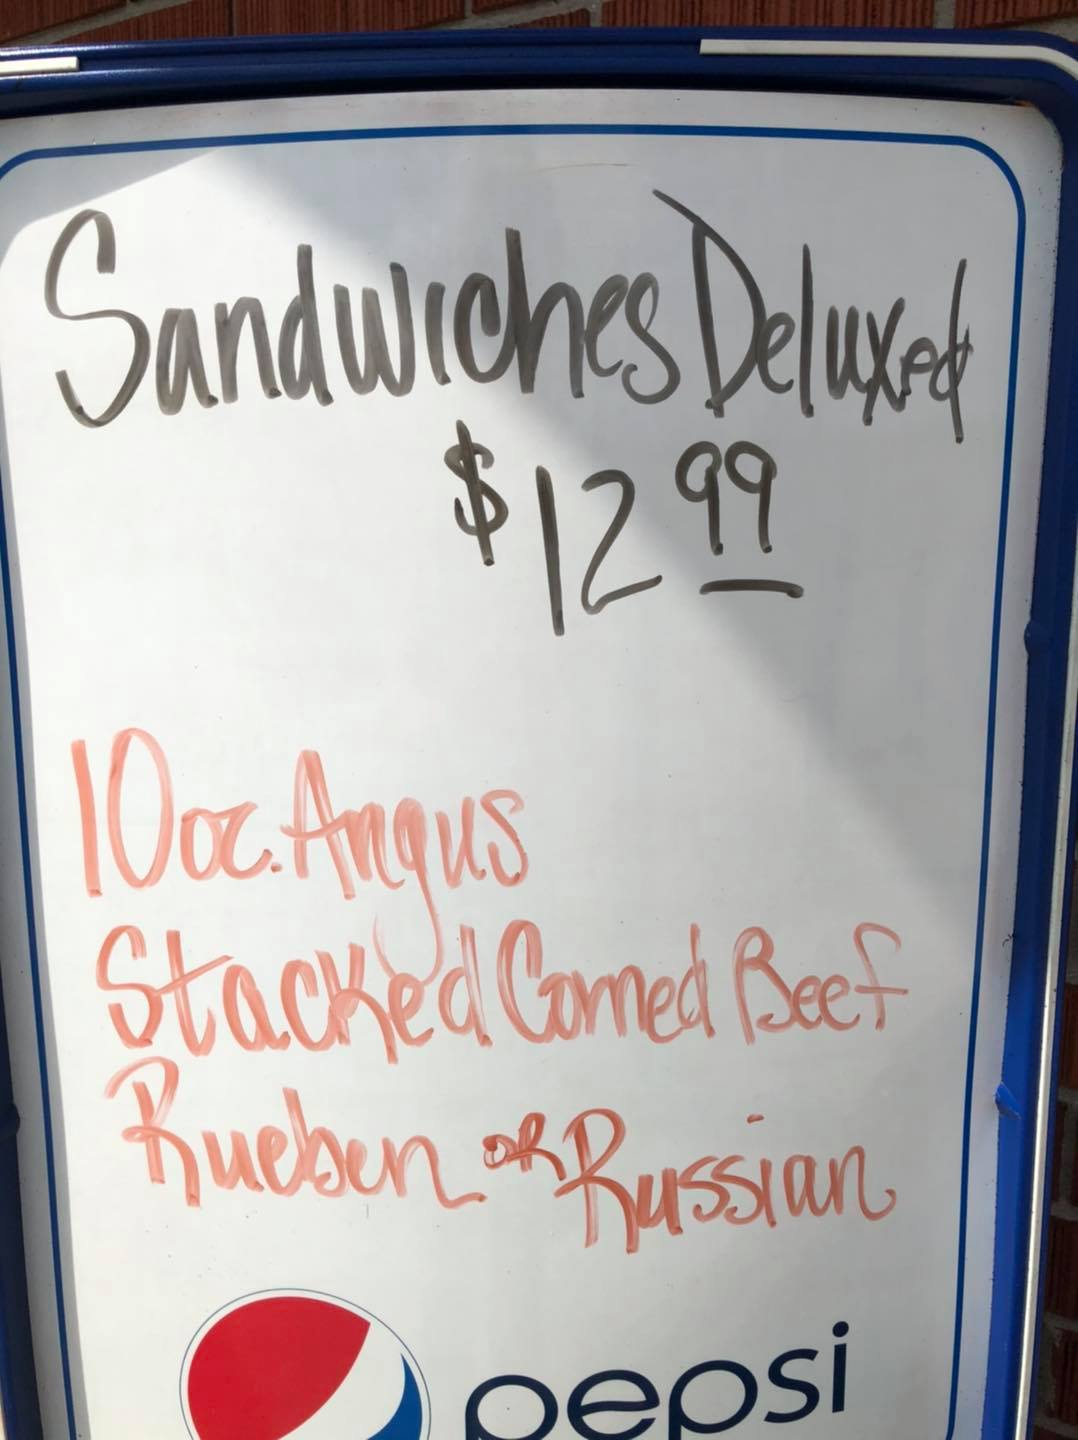 Sandwiches Deluxed
$12.99
10oz. Angus
Stacked Corned Beef
Rueben or Russian
pepsi